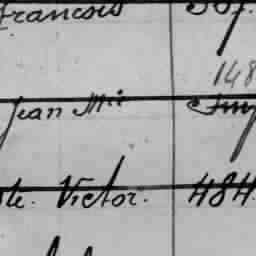 Francois 367.
148
Jean Mie
te. Victor. 484.